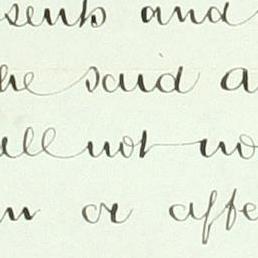 sents and
he said a
all not wo
n or affe